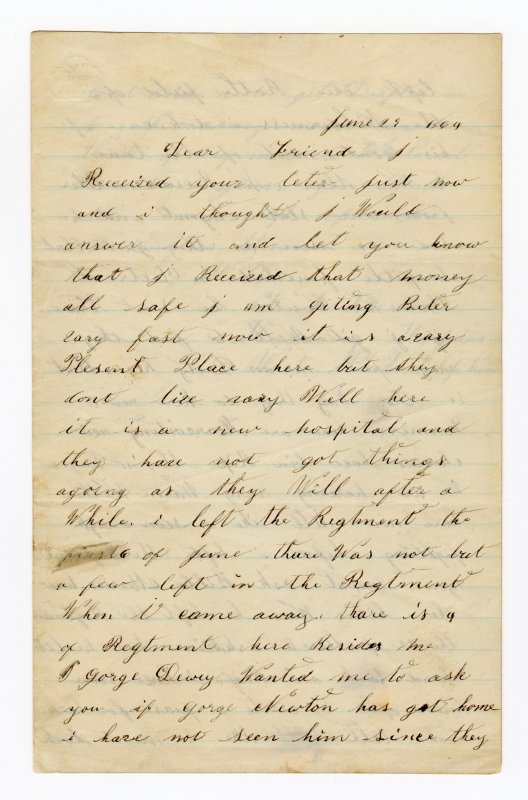 June 29 1864
Dear Friend j
Received your leter just now
and i thought j Would
answer it and let you know
that j Received that money
all safe j am giting Beter
vary fast now it is a vary
Plesent Place here but they
dont live vary Well here
it is a new hospital and
they have not got things
agoing as they Will after a
While. i left the Regtment the
of June thare Was not but
a few left in the Regtment
When I came away. thare is 9
of Regtment here Besides me
Gorge Dewey Wanted me to ask
you if Gorge Newton has got home
i have not seen him since they